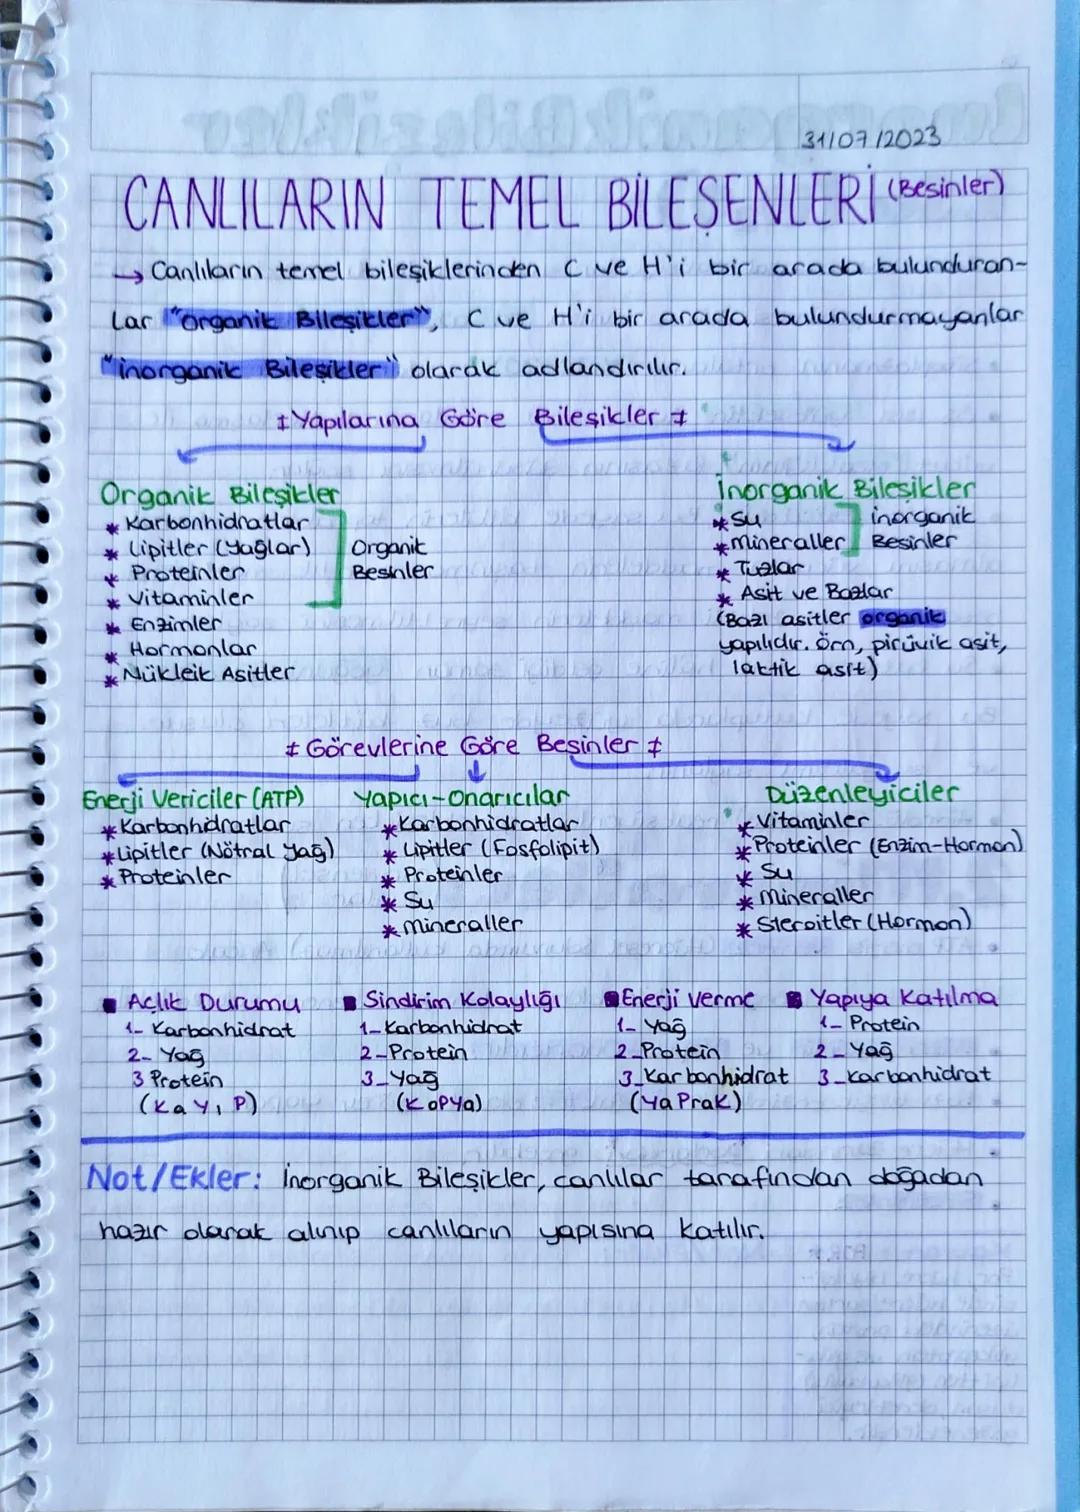 31/07/2023
CANLILARIN TEMEL BİLEŞENLERİ (Besinler)
→ Canlıların temel bileşiklerinden C ve H'i bir arada bulunduran-
lar "Organik Bileşikler", C ve H'i bir arada bulundurmayanlar
"inorganik Bileşikler" olarak adlandırılır.
‡ Yapılarına Göre Bileşikler ‡
Organik Bileşikler
* Karbonhidratlar
* Lipitler (Yağlar)
* Proteinler
* Vitaminler
Organik
Besinler
* Enzimler
* Hormonlar
* Nükleik Asitler
İnorganik Bileşikler
* Su
* Mineraller
inorganik
Besinler
* Tuzlar
* Asit ve Bazlar
(Bazı asitler organik
yapılıdır. Örn, pirüvik asit,
laktik asit)
‡ Görevlerine Göre Besinler ‡
Enerji Vericiler (ATP)
* Karbonhidratlar
* Lipitler (Nötral Yağ)
* Proteinler
Yapıcı-Onarıcılar
* Karbonhidratlar
* Lipitler (Fosfolipit)
* Proteinler
* Su
* mineraller
Düzenleyiciler
* Vitaminler
* Proteinler (Enzim-Hormon)
* Su
* Mineraller
* Steroitler (Hormon)
■ Açlık Durumu
1- Karbonhidrat
2- Yağ
3 Protein
(KaYıP)
■ Sindirim Kolaylığı
1-Karbonhidrat
2-Protein
3-Yağ
(KoPYa)
■ Enerji verme
1- Yağ
2-Protein
3-Karbonhidrat
(YaPraK)
■ Yapıya Katılma
1- Protein
2-Yağ
3-Karbonhidrat
Not/Ekler: İnorganik Bileşikler, canlılar tarafından doğadan
hazır olarak alınıp canlıların yapısına katılır.